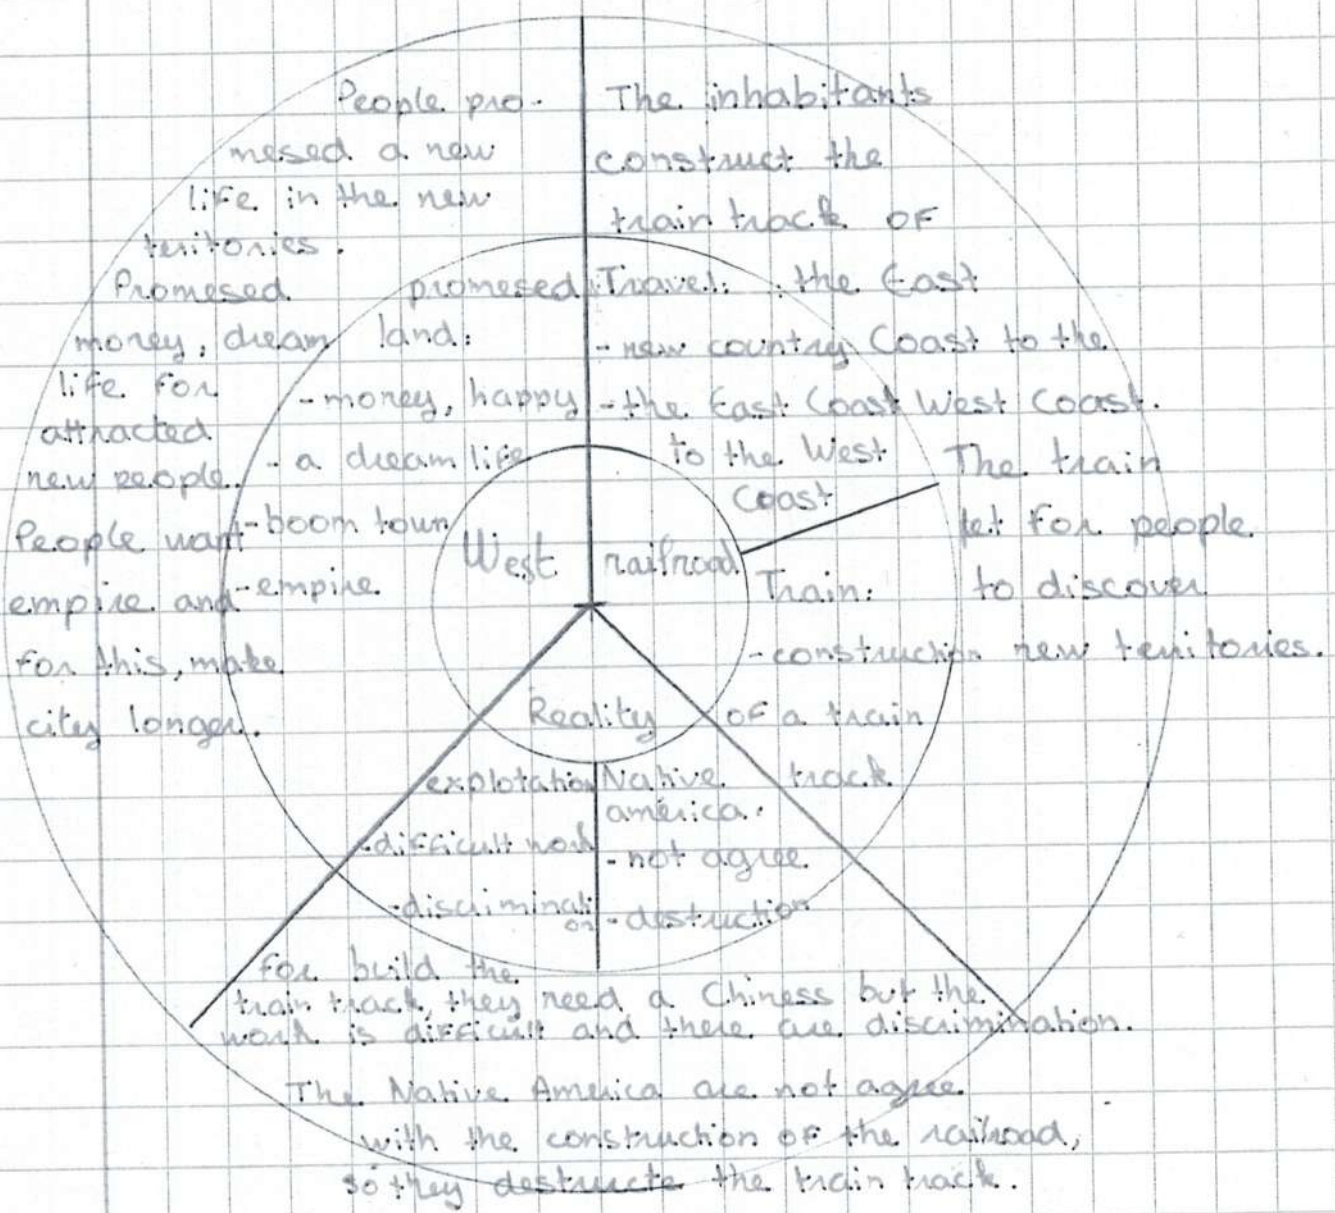 People pro-
mesed a new
life in the new
teritories.
Promesed
money, dream
life for
attracted
new people.
People want
empire and
for this, make
city longer.
promesed
land:
- money, happy
- a dream life
- boom town
- empire
West
The inhabitants
construct the
train track of
the East
Coast to the
West Coast.
The train
let for people
to discover
new teritories.
Travel:
- new country
- the East Coast
to the West
Coast
Train:
- construction
of a train
track
railroad
Reality
explotation
- difficult work
- discriminati
on
Native
américa:
- not agree
- destruction
for build the
train track, they need a Chiness but the
work is difficult and there are discrimination.
The Native America are not agree
with the construction of the railroad,
so they destructe the train track.